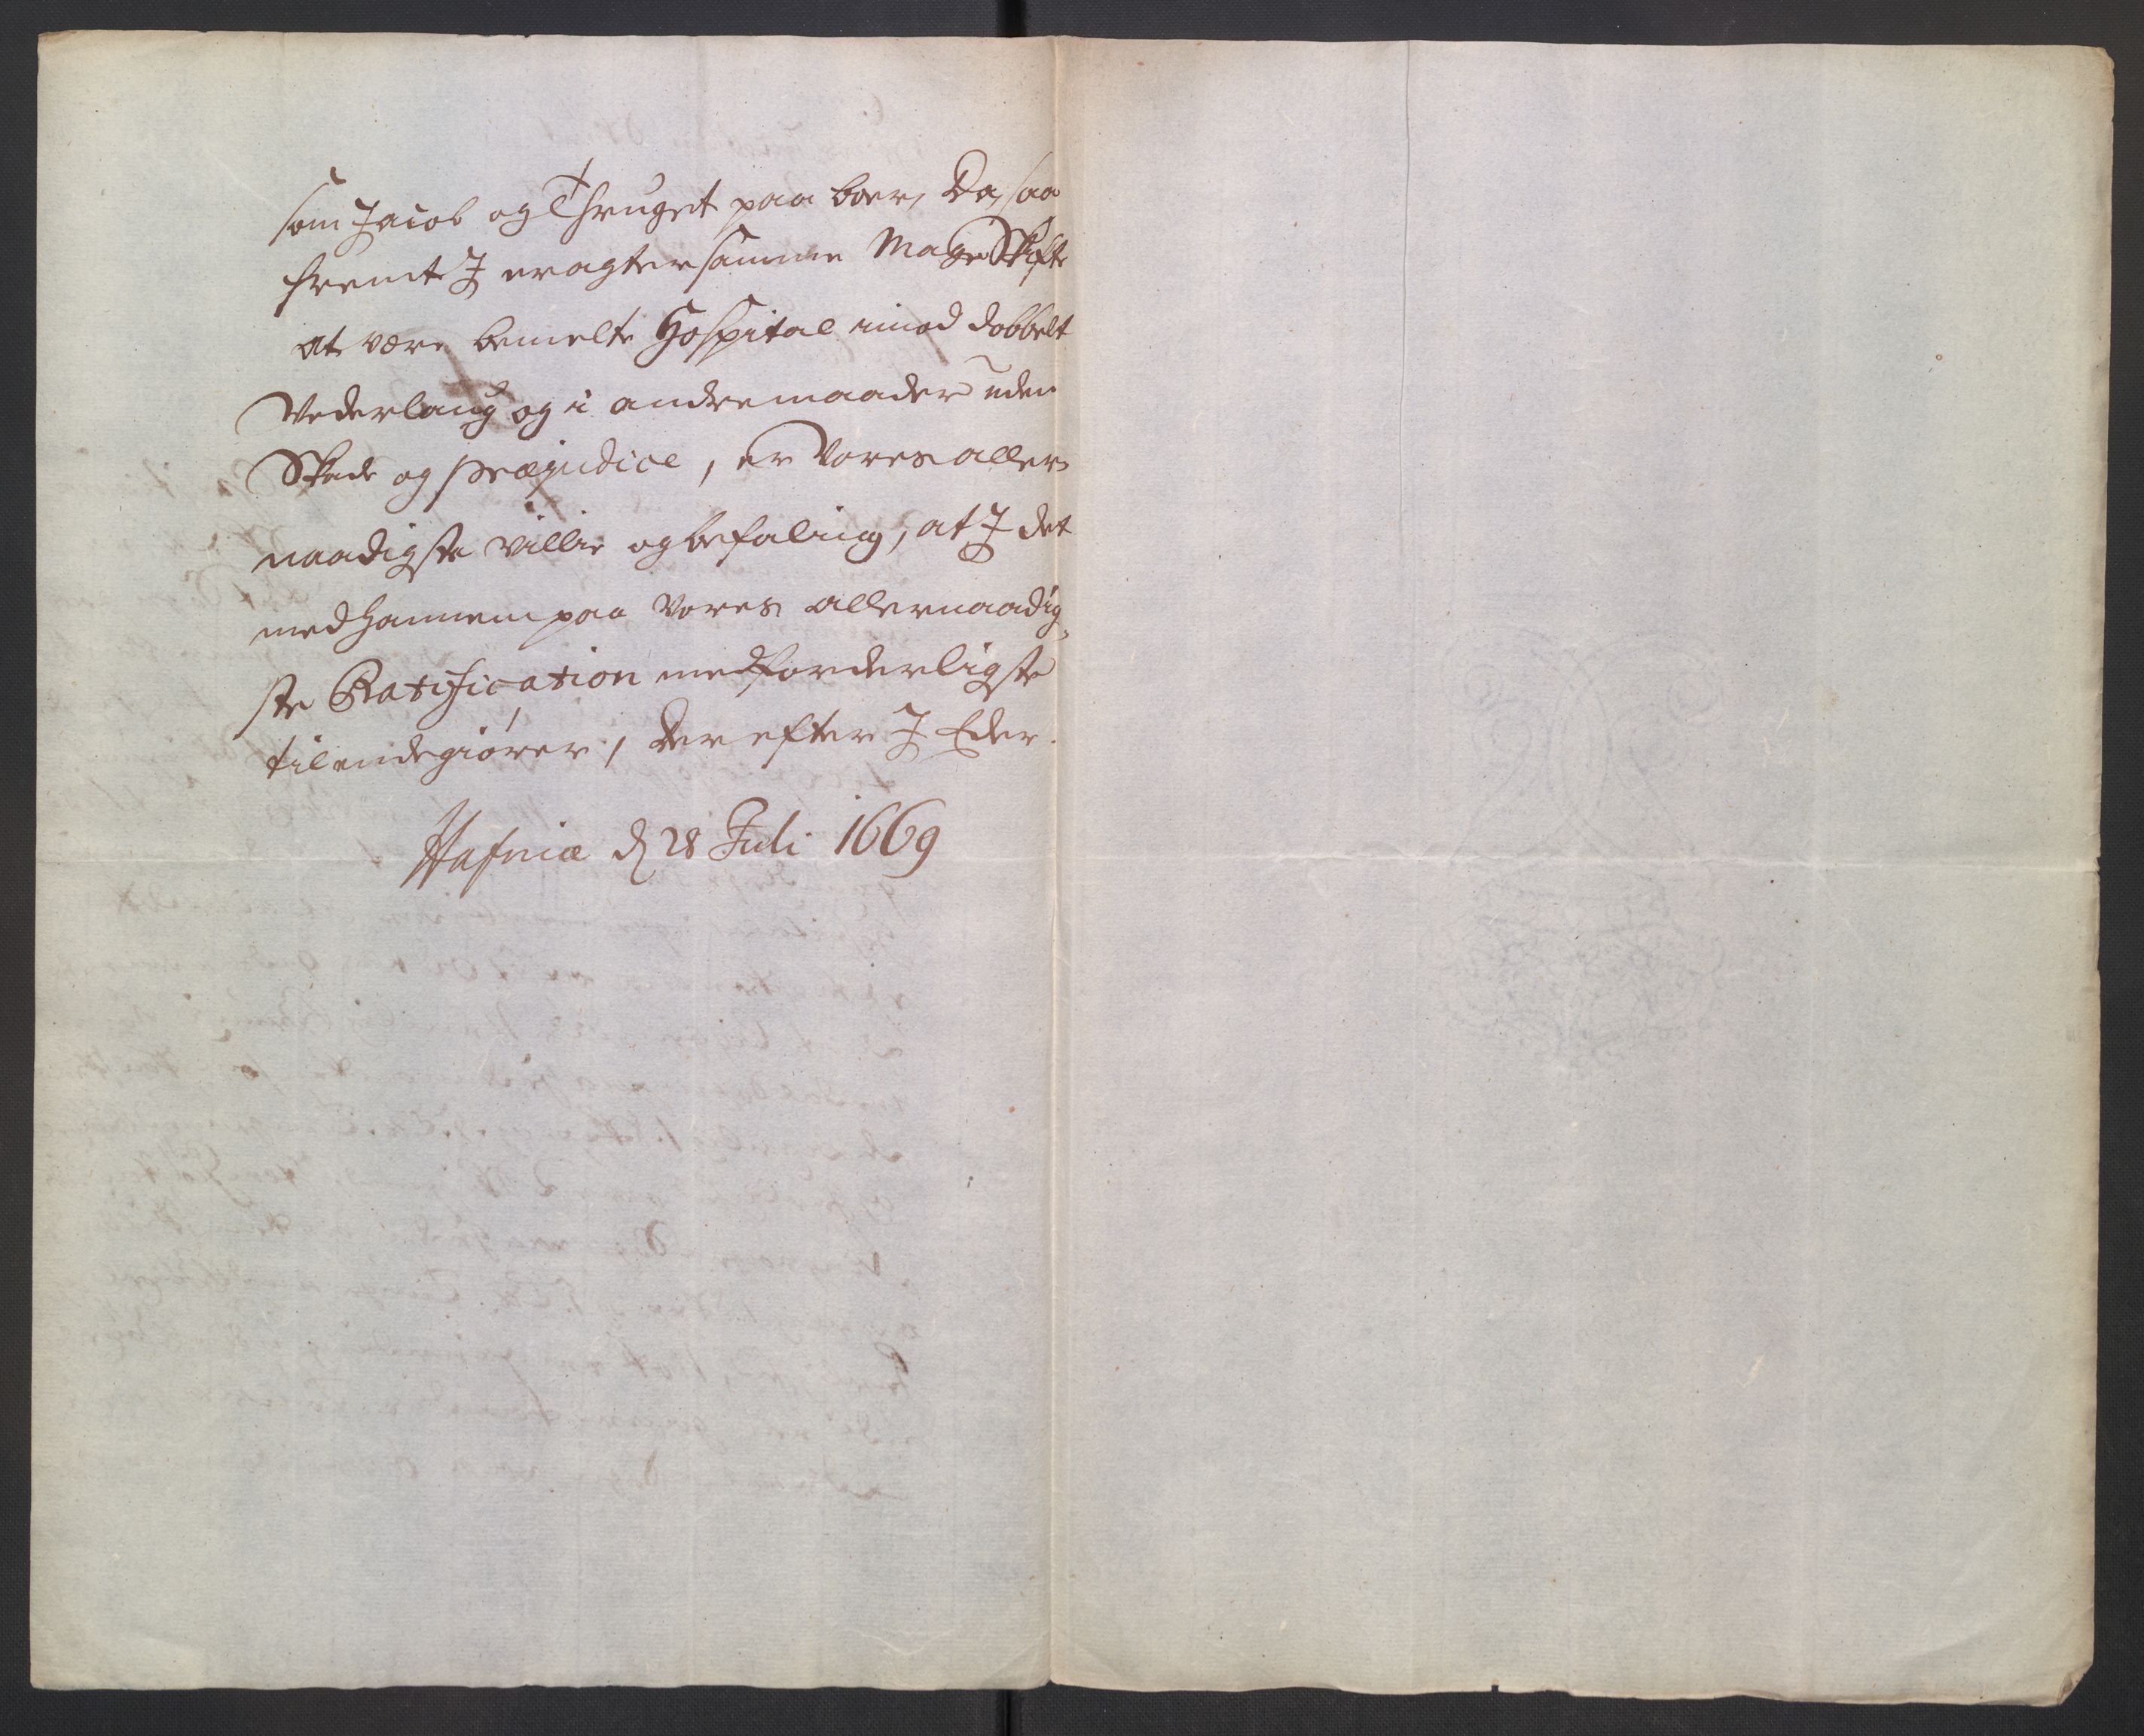 som Jacob og Thruget paa boer, Da, saa
fremt J eragter samme Mageskifte
at være bemelte Hospital imod dobbelt
Vederlaug og i andre maader uden
Skade og præjudice, er Vores aller
naadigste villie og befaling, at J det
med hannem paa Vores allernaadig,
ste Ratification med forderligste
til ende giører, Der efter J Eder.
Hafniæ d 28 Juli 1669